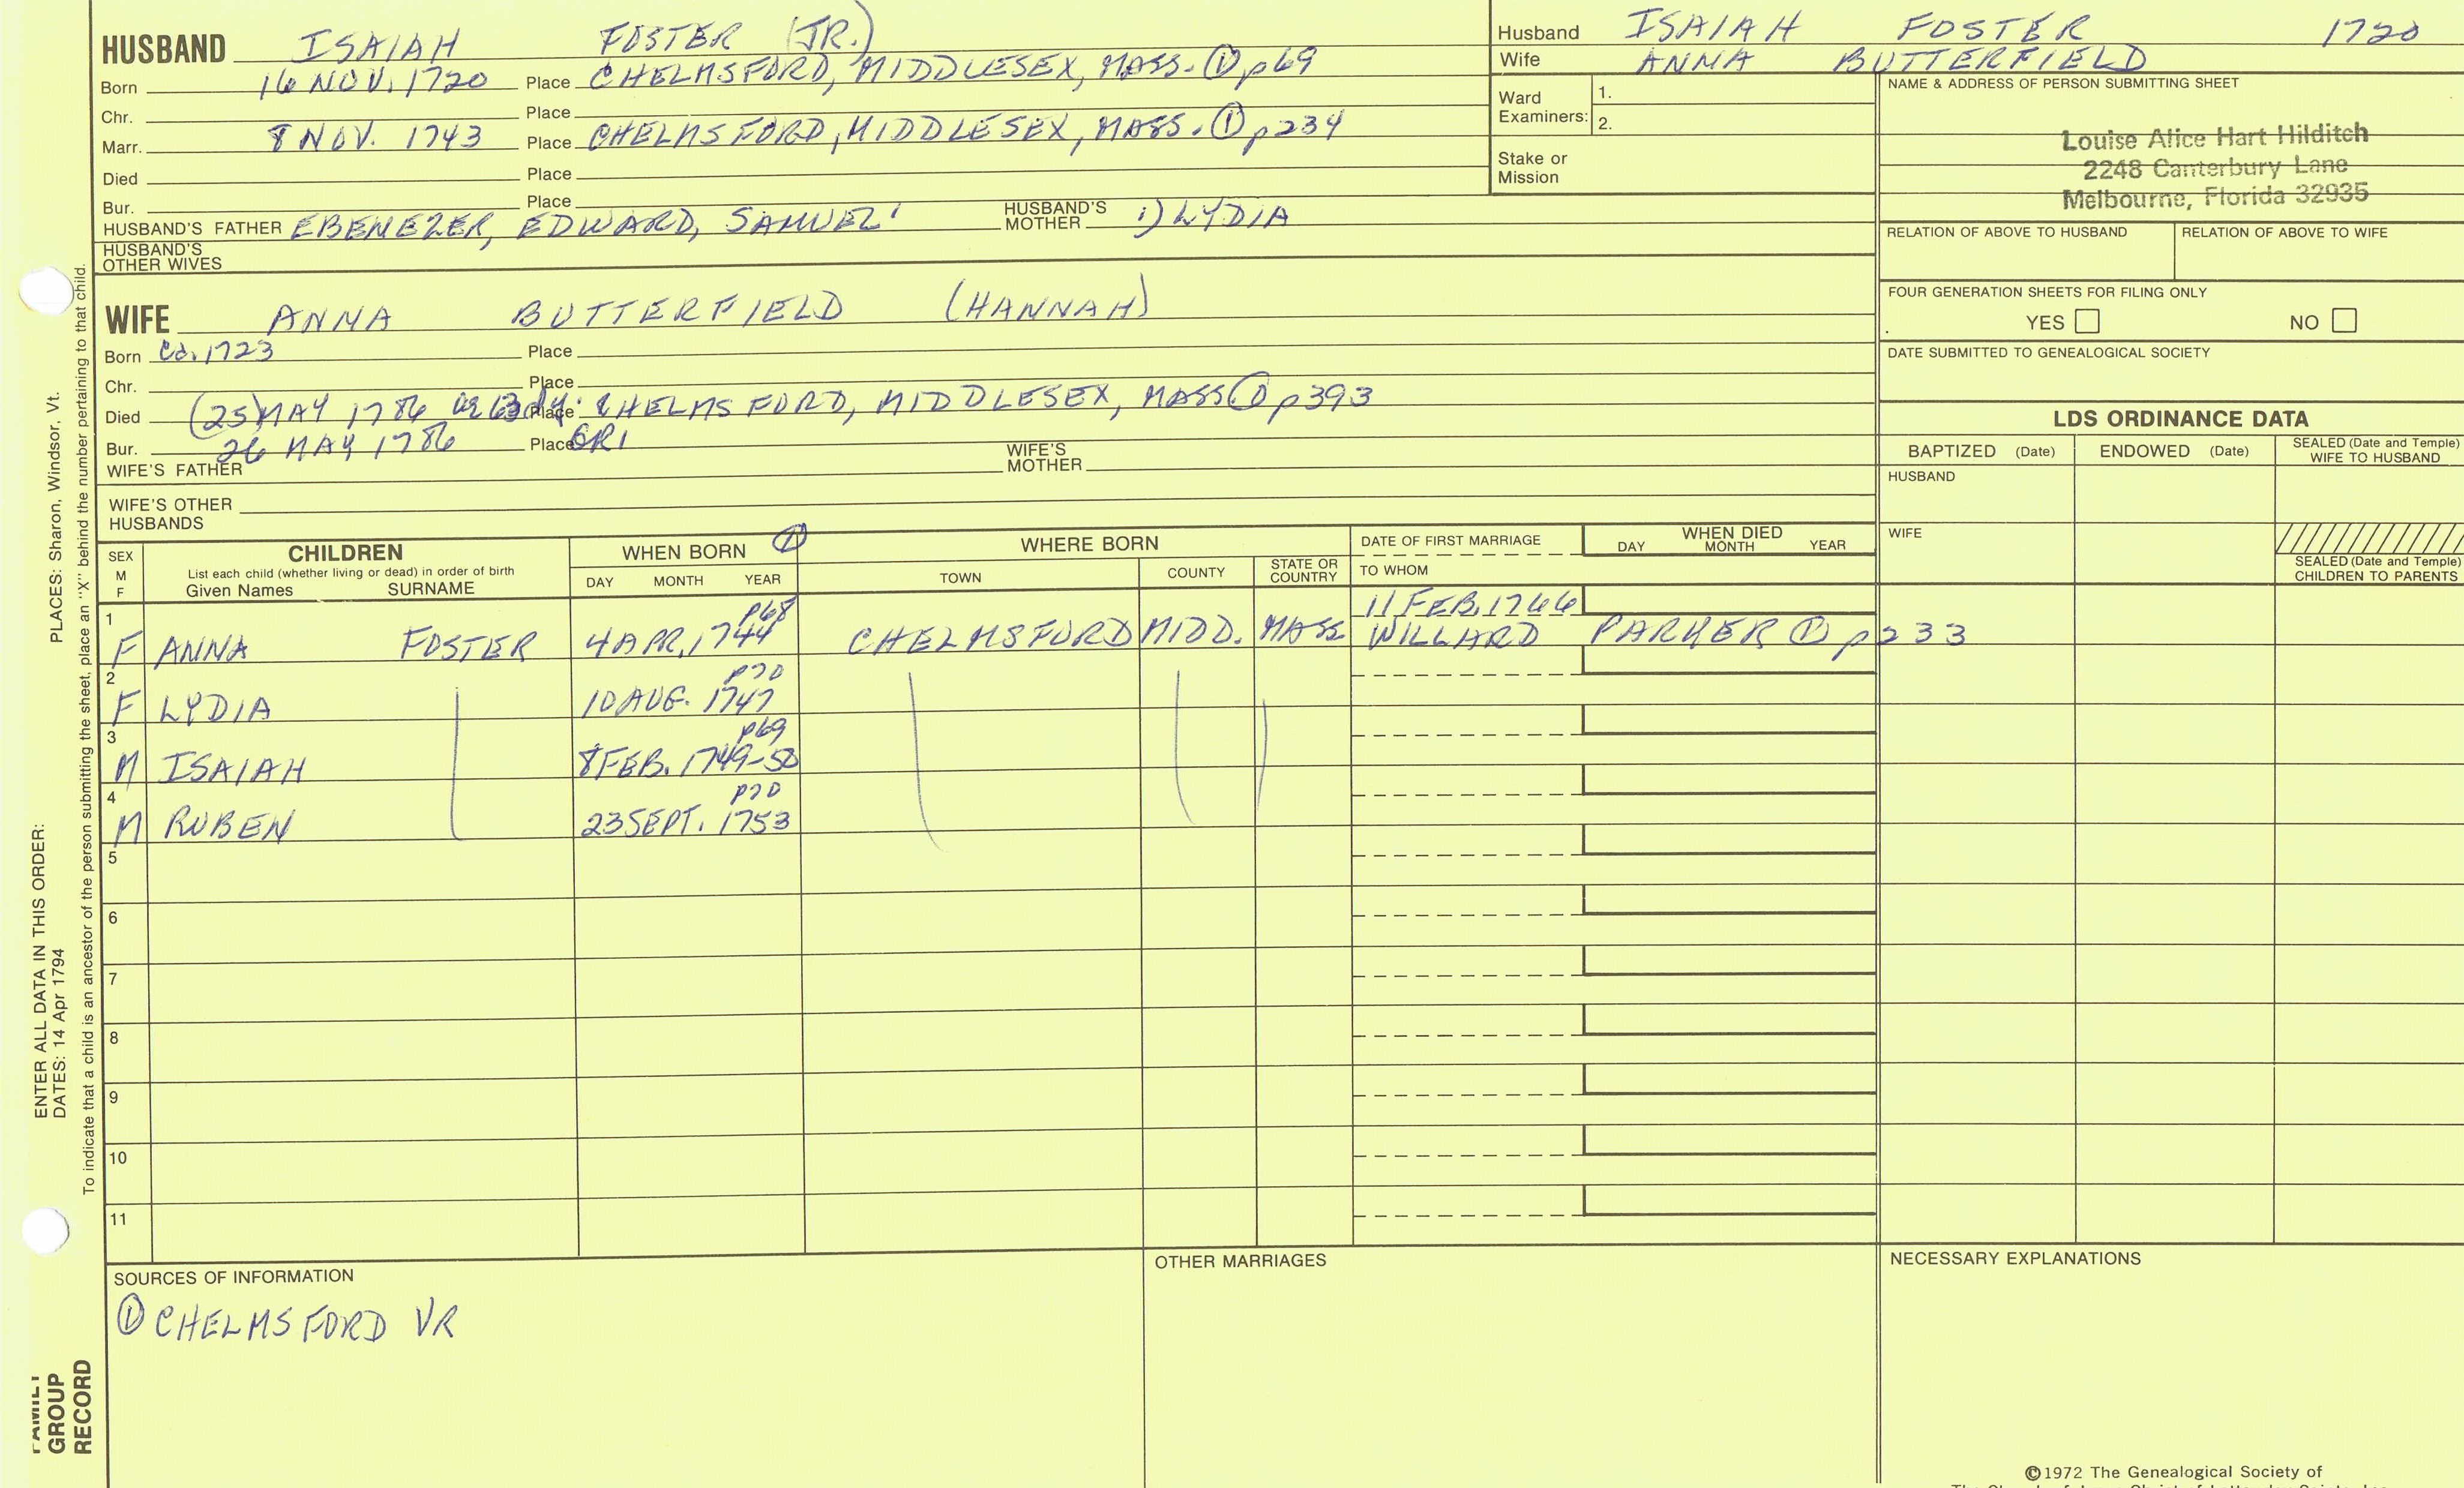 HUSBAND ISAIAH FOSTER (JR.)
Born 16 NOV. 1720 Place CHELMSFORD, MIDDLESEX, MASS. ① p69
Chr. Place
Marr. 8 NOV. 1743 Place CHELMSFORD, MIDDLESEX, MASS. ① p234
Died Place
Bur. Place
HUSBAND'S FATHER EBENEZER, EDWARD, SAMUEL HUSBAND'S MOTHER 1) LYDIA
HUSBAND'S OTHER WIVES
Husband ISAIAH FOSTER 1720
Wife ANNA BUTTERFIELD
Ward Examiners: 1.
2.
Stake or Mission
NAME & ADDRESS OF PERSON SUBMITTING SHEET
Louise Alice Hart Hilditch
2248 Canterbury Lane
Melbourne, Florida 32935
RELATION OF ABOVE TO HUSBAND RELATION OF ABOVE TO WIFE
FOUR GENERATION SHEETS FOR FILING ONLY
YES NO
DATE SUBMITTED TO GENEALOGICAL SOCIETY
WIFE ANNA BUTTERFIELD (HANNAH)
Born Ca. 1723 Place
Chr. Place
Died (25) MAY 1786 Place CHELMSFORD, MIDDLESEX, MASS ① p393
Bur. 26 MAY 1786 Place GR1
WIFE'S FATHER WIFE'S MOTHER
WIFE'S OTHER HUSBANDS
LDS ORDINANCE DATA
BAPTIZED (Date) ENDOWED (Date) SEALED (Date and Temple) WIFE TO HUSBAND
HUSBAND
WIFE
SEALED (Date and Temple) CHILDREN TO PARENTS
SEX M F
CHILDREN
List each child (whether living or dead) in order of birth
Given Names SURNAME
WHEN BORN ①
DAY MONTH YEAR
WHERE BORN
TOWN COUNTY STATE OR COUNTRY
DATE OF FIRST MARRIAGE
TO WHOM
WHEN DIED
DAY MONTH YEAR
1 p68 11 FEB. 1766
F ANNA FOSTER 4 APR. 1744 CHELMSFORD MIDD. MASS WILLARD PARKER ① p233
2 p70
F LYDIA 10 AUG. 1747
3 p69
M ISAIAH 8 FEB. 1749-50
4 p70
M RUBEN 23 SEPT. 1753
5
6
7
8
9
10
11
SOURCES OF INFORMATION
① CHELMSFORD VR
OTHER MARRIAGES
NECESSARY EXPLANATIONS
©1972 The Genealogical Society of
ENTER ALL DATA IN THIS ORDER:
DATES: 14 Apr 1794 PLACES: Sharon, Windsor, Vt.
To indicate that a child is an ancestor of the person submitting the sheet, place an "X" behind the number pertaining to that child.
FAMILY
GROUP
RECORD